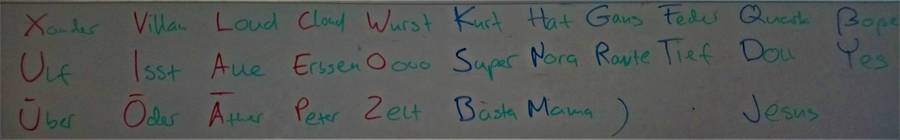 Xander Villan Loud Cloud Wurst Kurt Hat Gans Feder Quark Bope
Ulf Isst Aue Erssen Oooo Super Nora Raute Tief Dou Yes
Über Öder Äther Peter Zeit Bästa Mama ) Jesus